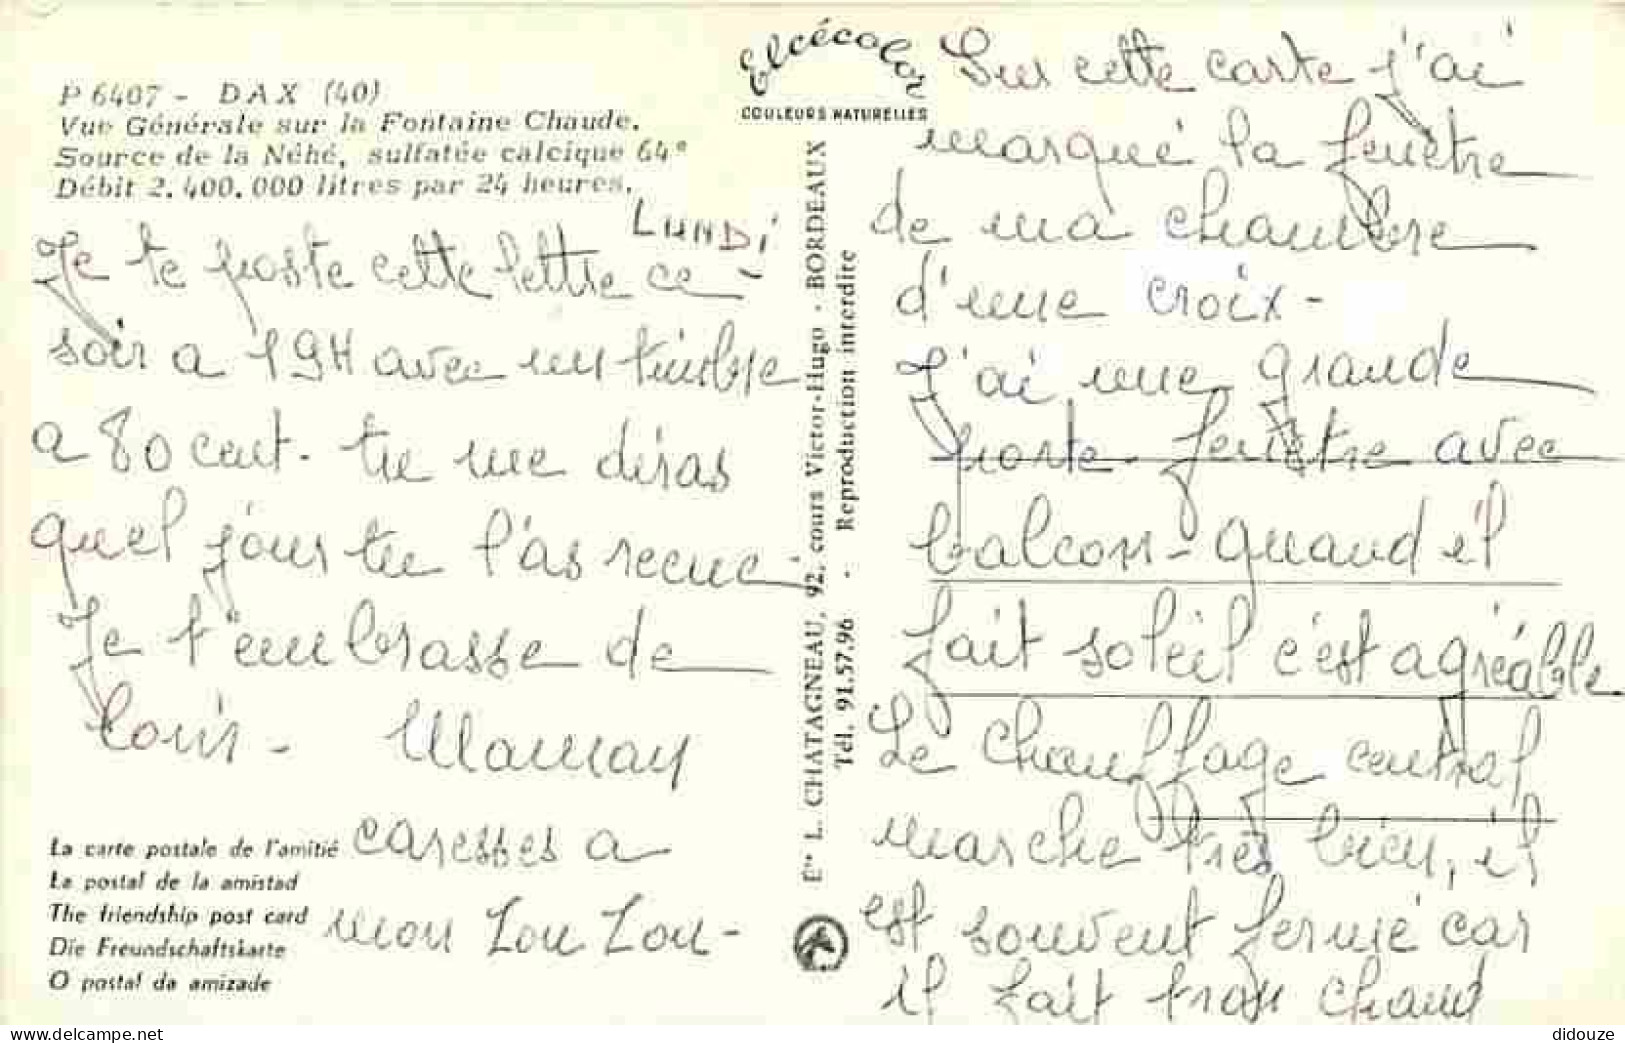 P 6407 - DAX (40)
Vue Générale sur la Fontaine Chaude.
Source de la Néhé, sulfatée calcique 64°
Débit 2.400.000 litres par 24 heures.
LUNDi
Je te poste cette lettre ce
soir a 19H avec un timbre
a 80 cent. tu me diras
quel jour tu l'as recue.
Je t'embrasse de
loin - Maman
caresses a
mon Zou Zou -
La carte postale de l'amitié
La postal de la amistad
The friendship post card
Die Freundschaftskarte
O postal da amizade
Elcécolor
COULEURS NATURELLES
Éts L. CHATAGNEAU, 92, cours Victor-Hugo - BORDEAUX
Tél. 91.57.96 - Reproduction interdite
Sur cette carte j'ai
marqué la fenêtre
de ma chambre
d'une croix -
J'ai une grande
porte-fenêtre avec
balcon - quand il
fait soleil c'est agréable
Le chauffage central
marche très bien, il
est souvent fermé car
il fait trop chaud
didouze